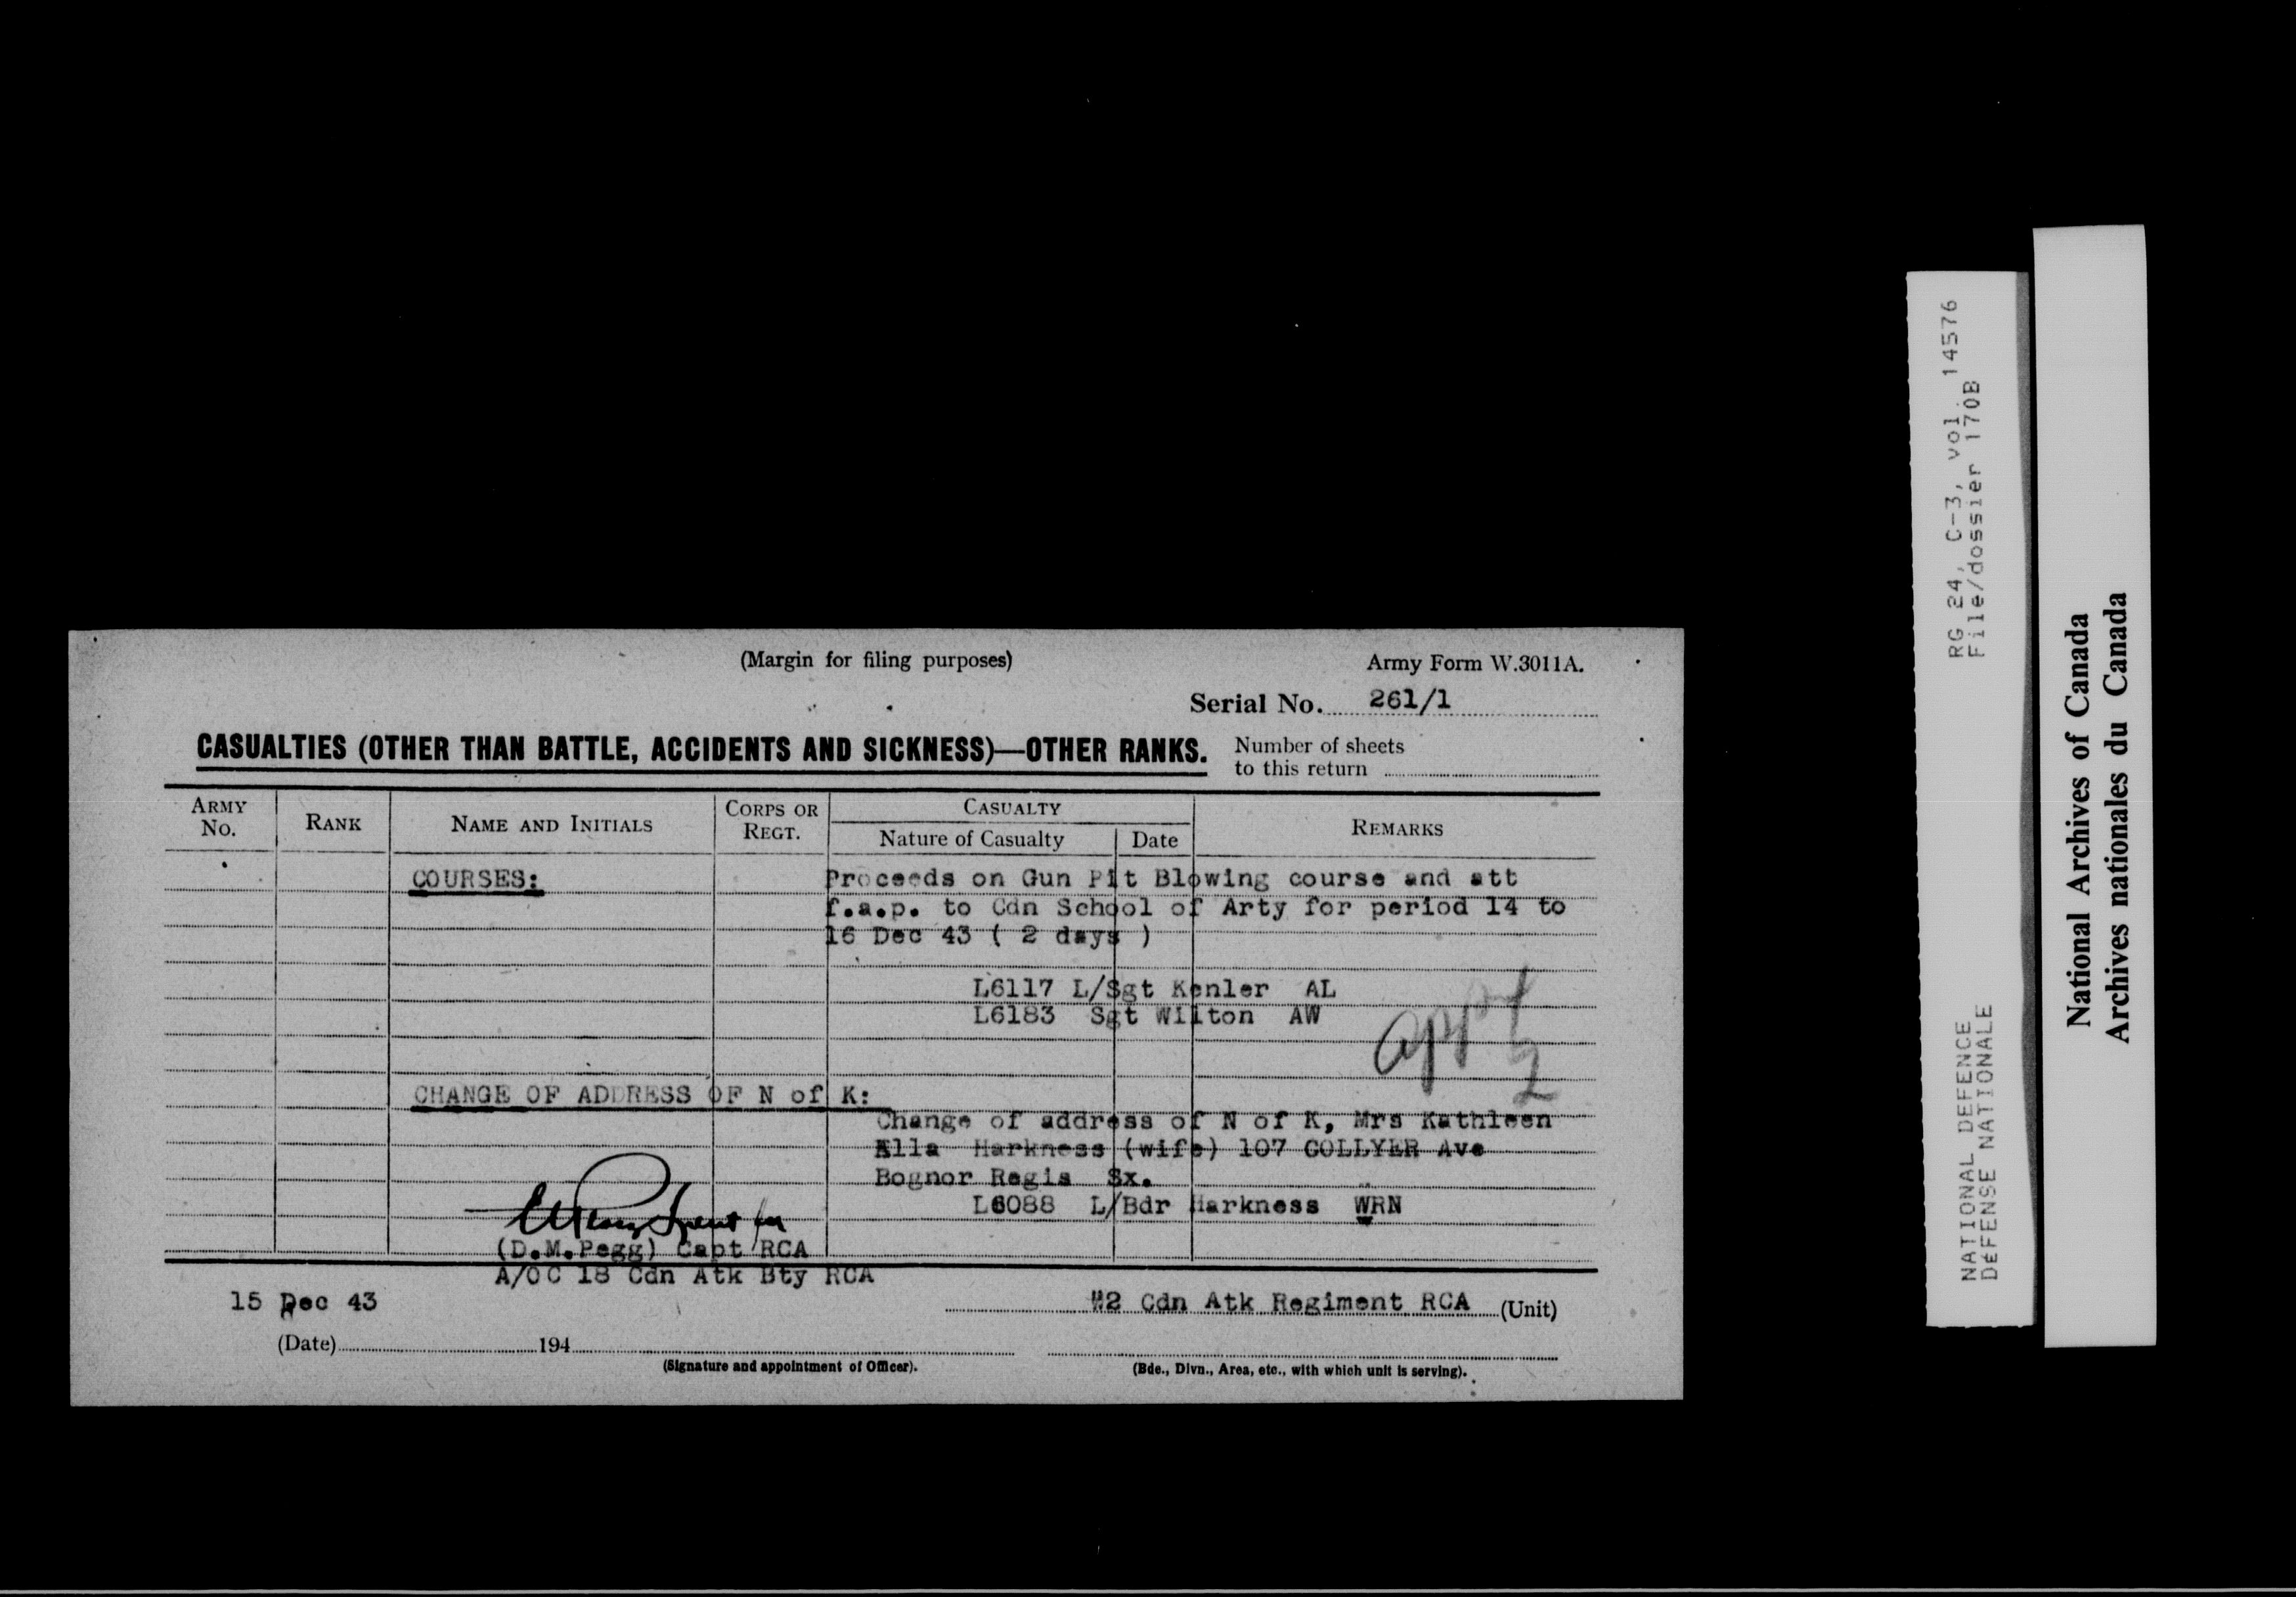 (Margin for filing purposes)
Army Form W.3011A.
Serial No. 261/1
CASUALTIES (OTHER THAN BATTLE, ACCIDENTS AND SICKNESS)—OTHER RANKS.
Number of sheets
to this return
ARMY No.
RANK
NAME AND INITIALS
CORPS OR REGT.
CASUALTY
Nature of Casualty
Date
REMARKS
COURSES:
Proceeds on Gun Pit Blowing course and att
f.a.p. to Cdn School of Arty for period 14 to
16 Dec 43 ( 2 days )
L6117 L/Sgt Kenler AL
L6183 Sgt Wilton AW
app
2
CHANGE OF ADDRESS OF N of K:
Change of address of N of K, Mrs Kathleen
Ella Harkness (wife) 107 COLLYER Ave
Bognor Regis Sx.
L6088 L/Bdr Harkness WRN
(D.M.Pegg) Capt RCA
A/OC 18 Cdn Atk Bty RCA
15 Dec 43
2 Cdn Atk Regiment RCA (Unit)
(Date) 194
(Signature and appointment of Officer).
(Bde., Divn., Area, etc., with which unit is serving).
RG 24, C-3, vol. 14576
File/dossier 170B
NATIONAL DEFENCE
DÉFENSE NATIONALE
National Archives of Canada
Archives nationales du Canada